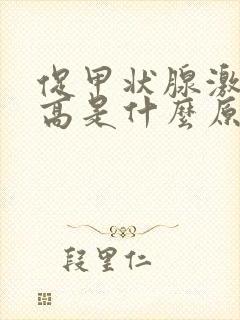 促甲状腺激
高是什麼原
段里仁